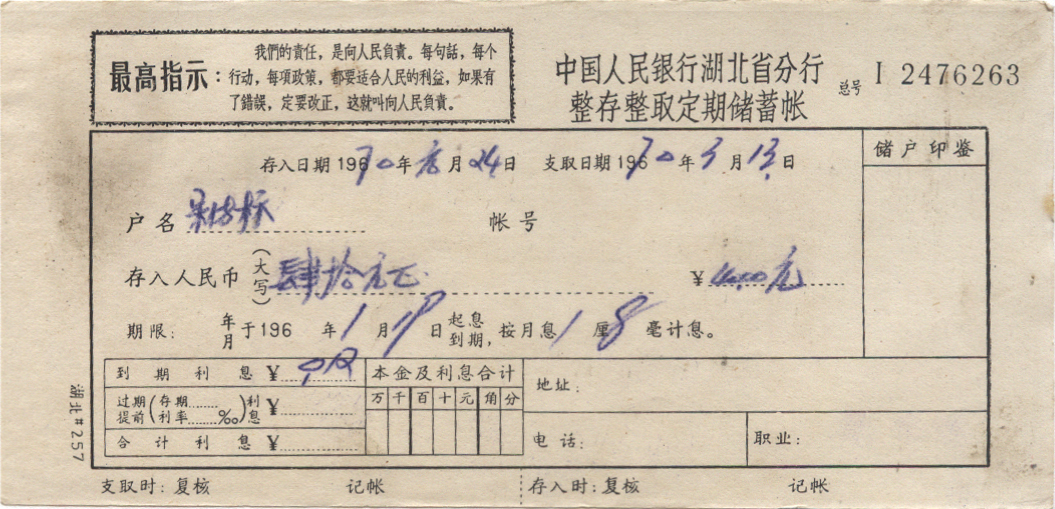 最高指示:
我們的責任，是向人民負責。每句話，每个
行动，每項政策，都要适合人民的利益，如果有
了錯誤，定要改正，这就叫向人民負責。
中国人民银行湖北省分行
整存整取定期储蓄帐
总号 I 2476263
存入日期 1970年元月24日 支取日期 1970年5月13日
储户印鉴
户名
帐号
存入人民币（大写）肆拾元正 ¥40.00元
期限: 年月于196 年1月 日起息到期，按月息1厘8毫计息。
到期利息 ¥
过期提前（存期……利率……‰）利息 ¥
合计利息 ¥
本金及利息合计
万 千 百 十 元 角 分
地址:
电话:
职业:
湖北#257
支取时: 复核 记帐 存入时: 复核 记帐